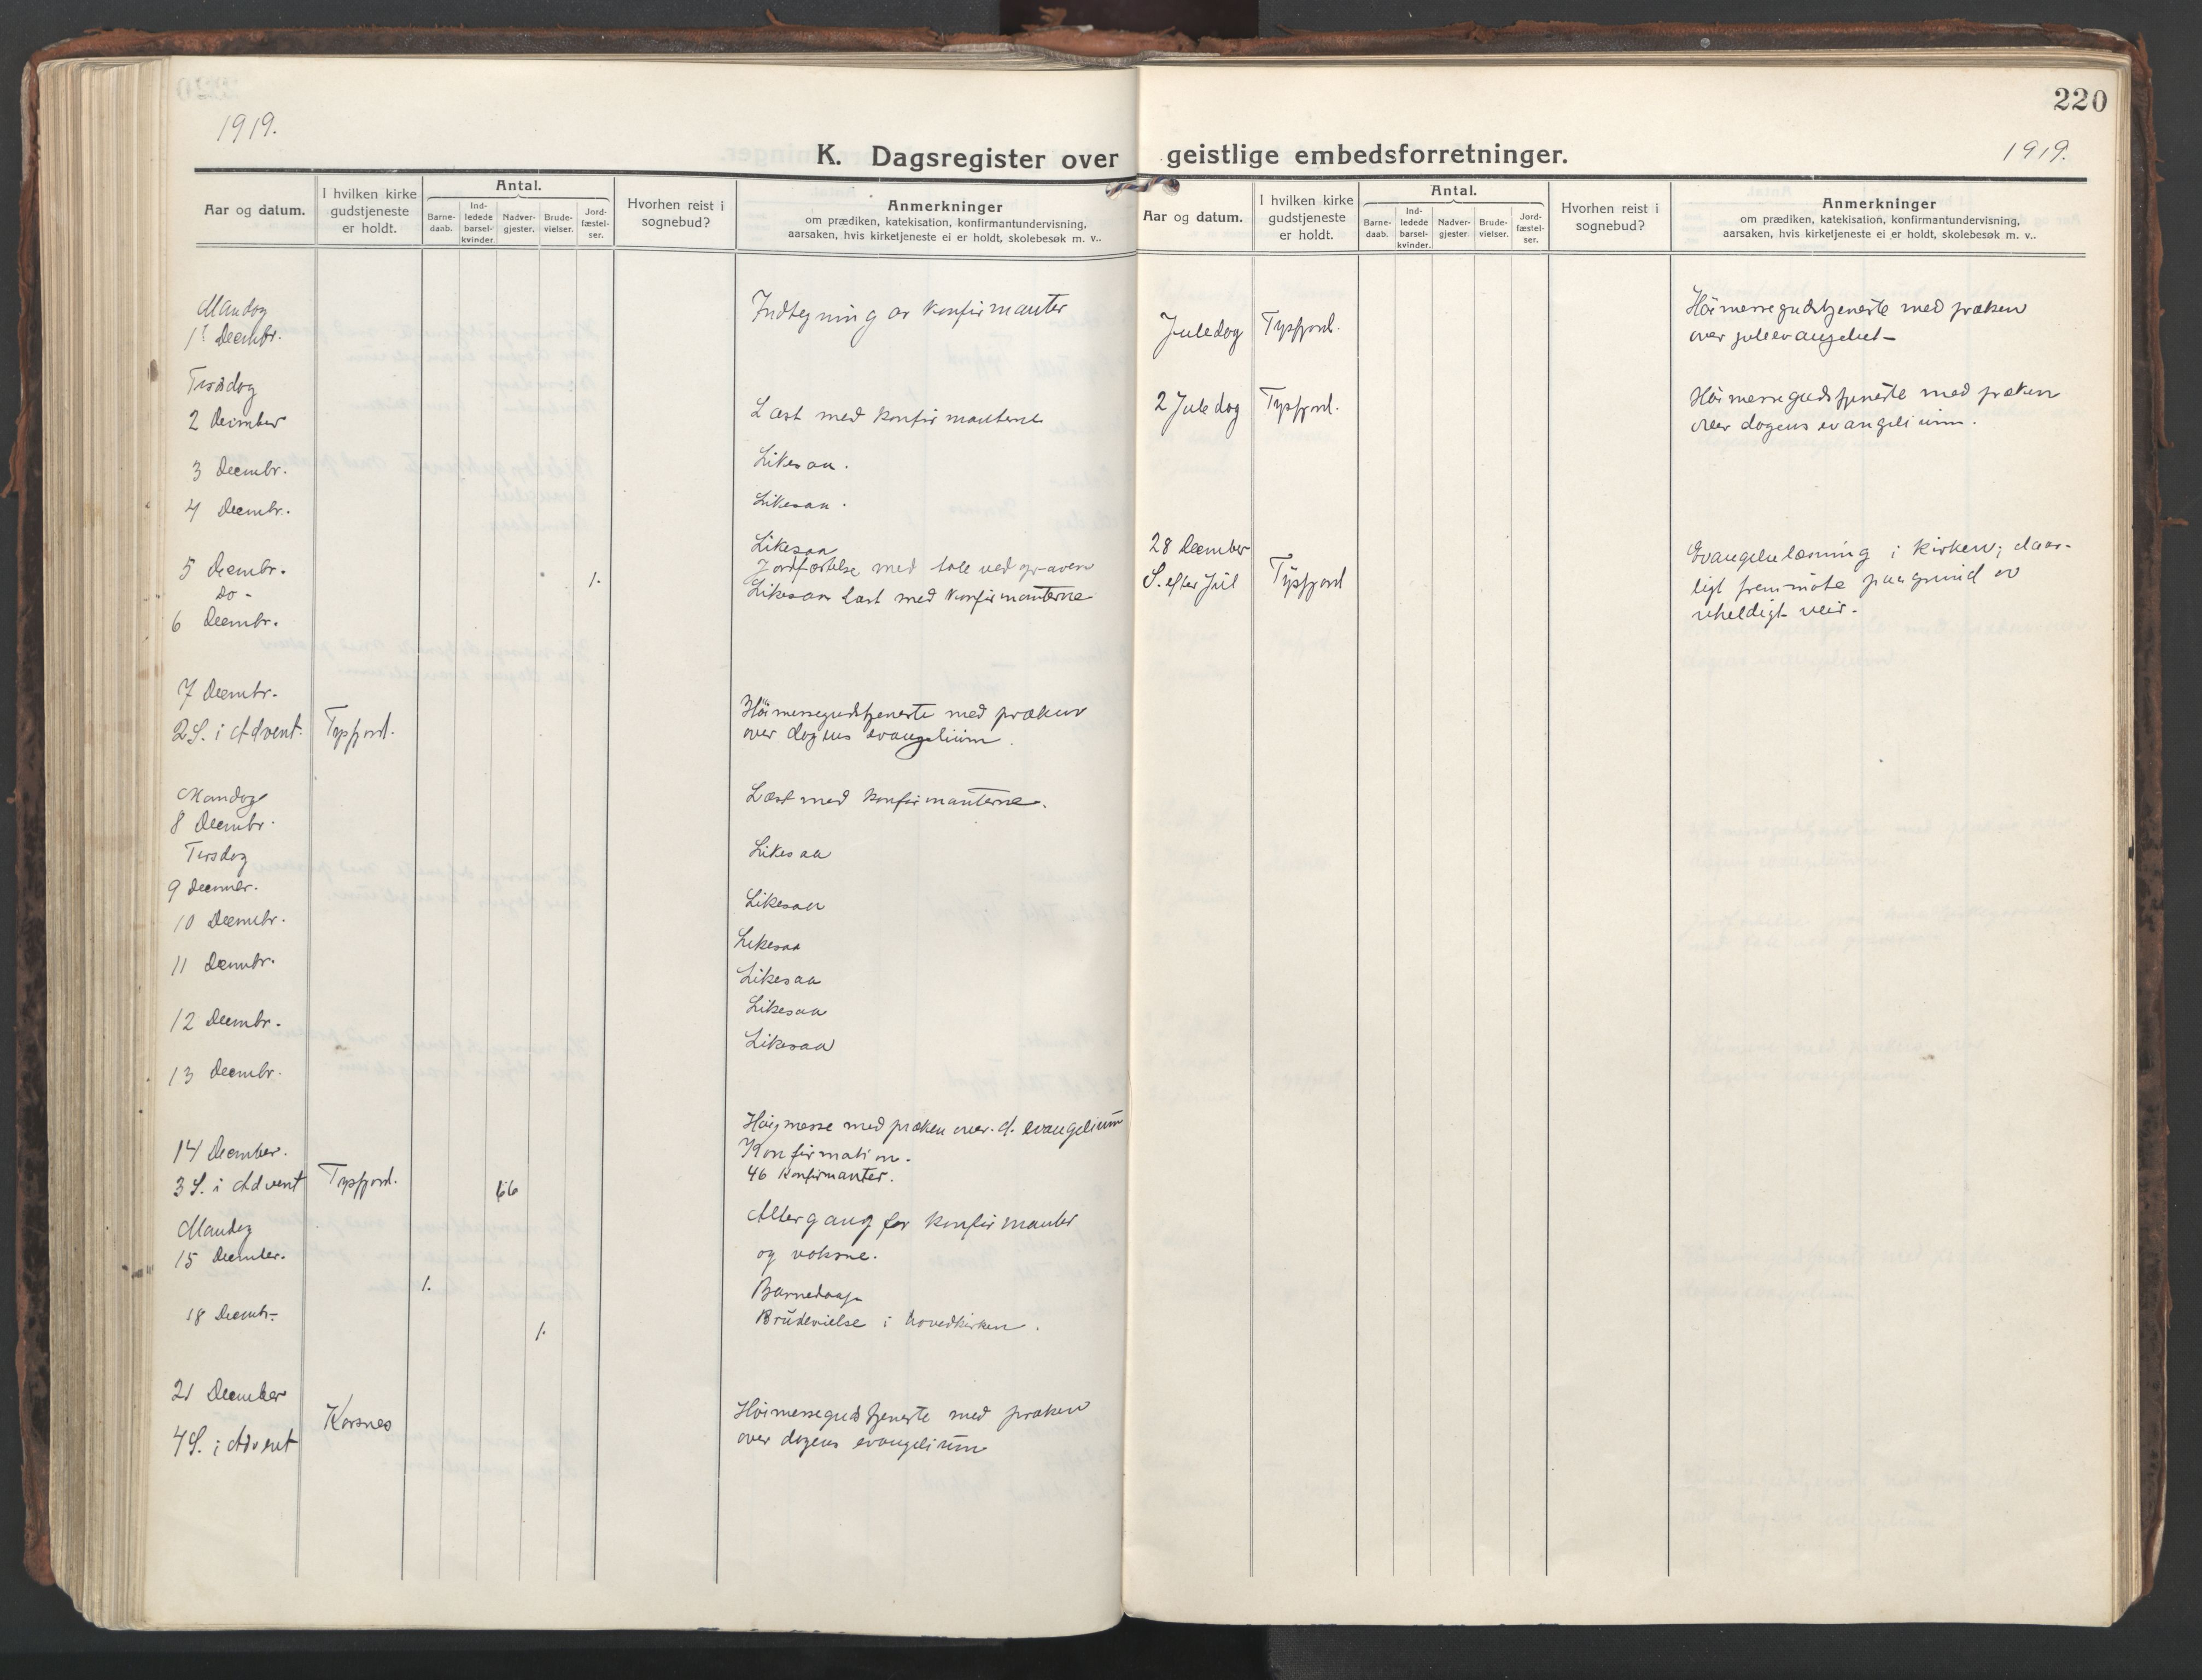 1919.
K. Dagsregister over
Aar og datum.
I hvilken kirke
gudstjeneste
er holdt.
Antal.
Barne-
daab.
Ind-
ledede
barsel-
kvinder.
Nadver-
gjester.
Brude-
vielser.
Jord-
fæstel-
ser.
Hvorhen reist i
sognebud?
Anmerkninger
om prædiken, katekisation, konfirmantundervisning,
aarsaken, hvis kirketjeneste ei er holdt, skolebesøk m. v..
Mandag
1ste Decmbr.
Indtegning av konfirmanter
Tirsdag
2 December
Læst med konfirmanterne
3 Decmbr.
Likesaa.
4 Decmbr.
Likesaa.
Likesaa
5 Decmbr. 1. Jordfæstelse med tale ved graven
Do - Likesaa Læst med konfirmanterne
6 Decmbr.
7 Decmbr.
2 S. i Advent. Tysfjord.
Høimessegudstjeneste med præken
over dagens evangelium.
Mandag
8 Decmbr.
Læst med konfirmanterne.
Tirsdag
Likesaa
9 Decmbr.
Likesaa
10 Decmbr.
Likesaa
11 Decmbr.
Likesaa
Likesaa
12 Decmbr.
Likesaa
13 Decmbr.
Høigmesse med præken over d. evangelium
14 December.
Konfirmation.
3 S. i Advent Tysfjord. 66 46 konfirmanter.
Mandag
15 December.
Altergang for konfirmanter
og voksne.
1. Barnedaap
18 Decmbr.
1. Brudevielse i hovedkirken.
21 December
4 S. i Advent Korsnes
Høimessegudstjeneste med præken
over dagens evangelium
220
1919.
geistlige embedsforretninger.
Aar og datum.
I hvilken kirke
gudstjeneste
er holdt.
Antal.
Barne-
daab.
Ind-
ledede
barsel-
kvinder.
Nadver-
gjester.
Brude-
vielser.
Jord-
fæstel-
ser.
Hvorhen reist i
sognebud?
Anmerkninger
om prædiken, katekisation, konfirmantundervisning,
aarsaken, hvis kirketjeneste ei er holdt, skolebesøk m. v..
Juledag Tysfjord.
Høimessegudstjeneste med præken
over juleevangeliet -
2 Juledag Tysfjord.
Høimessegudstjeneste med præken
over dagens evangelium.
28 December
S. efter Jul Tysfjord
Evangelielæsning i kirken; daar-
ligt fremmøte paa grund av
uheldigt veir.